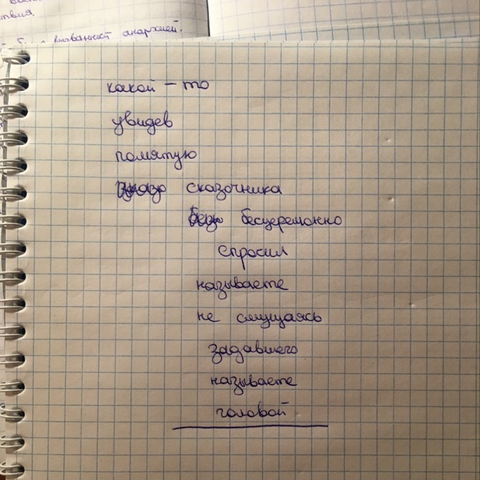 вызванност анархией.
какой - то
увидев
помятую
сказочника
бесцеремонно
спросил
называете
не смущаясь
задавшего
называете
головой